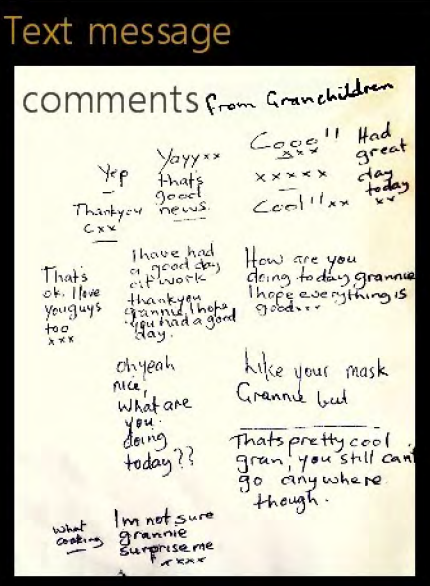 Text message
comments from Granchildren
Yep
Thankyou
Cxx
Yayy xx
that's
good
news.
Cooo!!
xxx
xxxxx
Cool!!xx
Had
great
day
today
xx
That's
ok. I love
you guys
too
xxx
I have had
a good day
at work
thankyou
grannie, I hope
you had a good
day.
How are you
doing today grannie
I hope everything is
good...
oh yeah
nice,
What are
you.
doing
today??
Like your mask
Grannie but
Thats pretty cool
gran, you still can't
go anywhere
though.
What
cooking
Im not sure
grannie
surprise me
xxxx